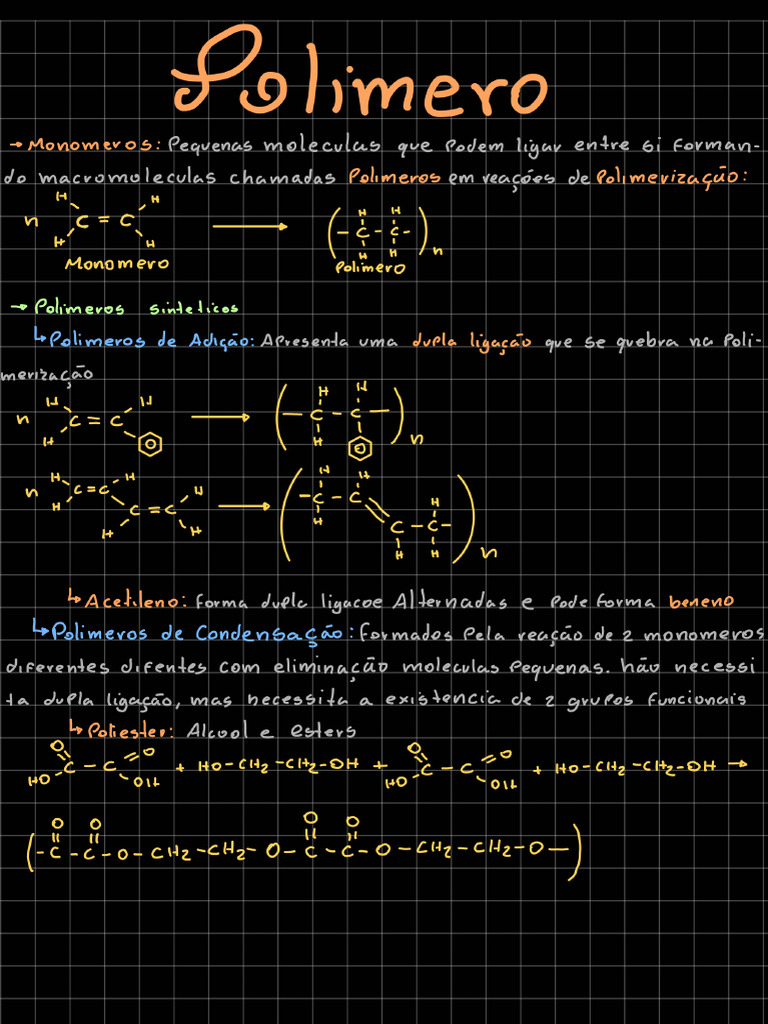 Polimero
→ Monomeros: Pequenas moleculas que podem ligar entre si forman-
do macromoleculas chamadas Polimeros em reações de Polimerização:
n H H C = C H H → ( H H - C - C - H H ) n
Monomero Polimero
→ Polimeros sinteticos
↳ Polimeros de Adição: Apresenta uma dupla ligação que se quebra na Poli-
merização
n H H C = C H → ( H H - C - C - H ) n
n H H C = C H C = C H H H → ( H H - C - C = C - C - H H H H ) n
↳ Acetileno: forma dupla ligacoe Alternadas e pode forma beneno
↳ Polimeros de Condensação: Formados pela reação de 2 monomeros
diferentes difentes com eliminação moleculas pequenas. hão necessi
ta dupla ligação, mas necessita a existencia de 2 grupos funcionais
↳ Poliester: Alcool e esters
O HO C - C O OH + HO-CH2-CH2-OH + O HO C - C O OH + HO-CH2-CH2-OH →
O O O O
(-C-C-O-CH2-CH2-O-C-C-O-CH2-CH2-O-)